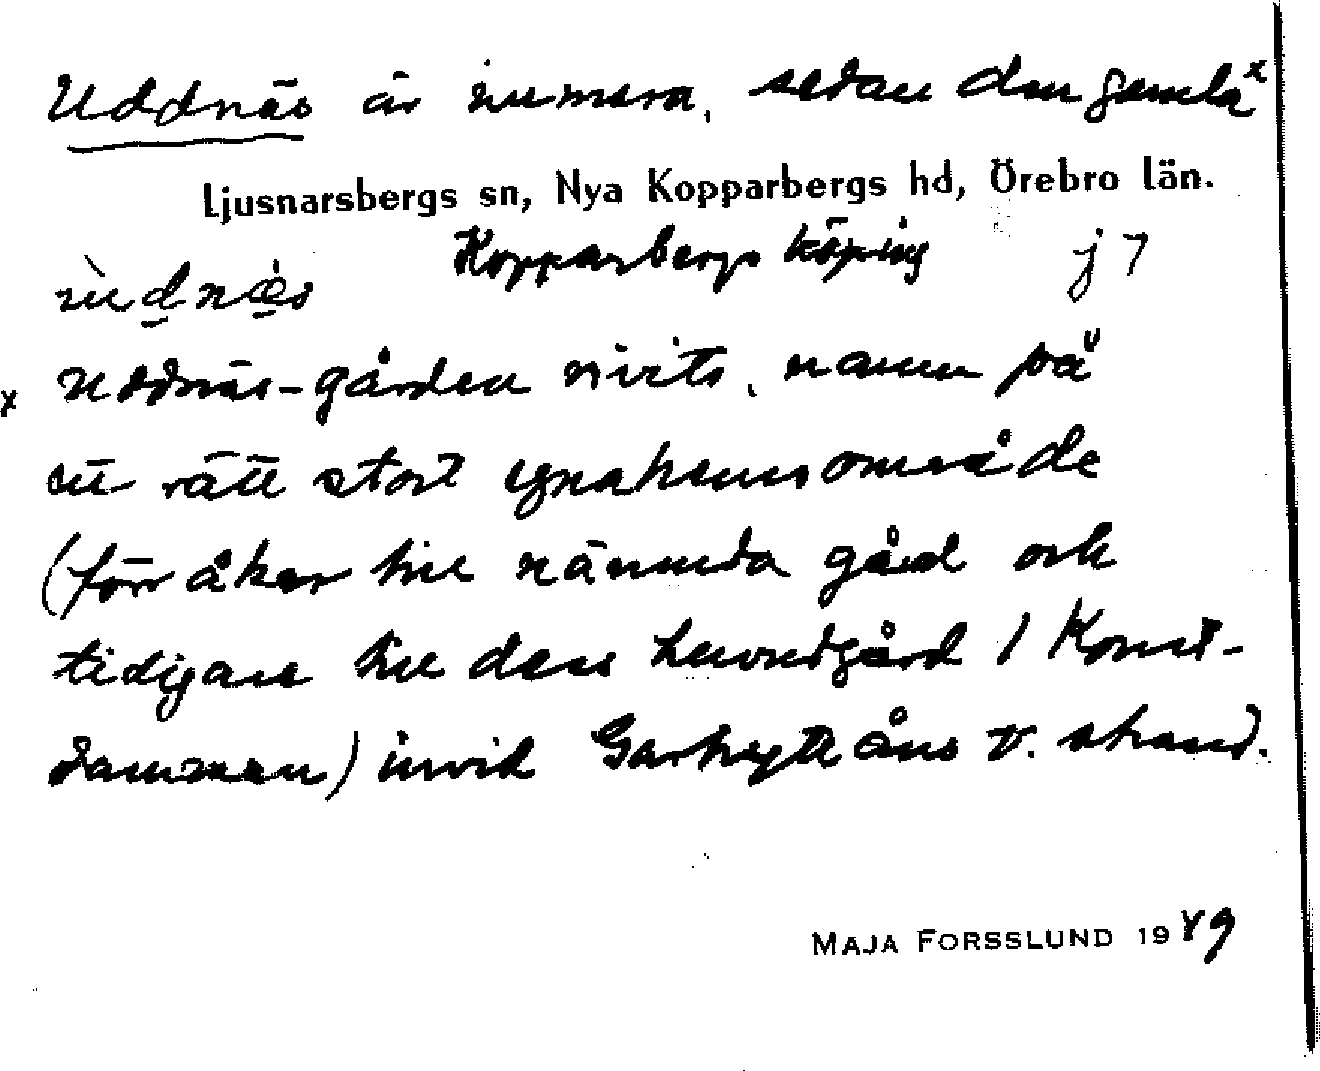 Uddnäs är numera, sedan den gamla x
Ljusnarsbergs sn, Nya Kopparbergs hd, Örebro län.
Kopparbergs köping j 7
ùdnæ̀s
x Uddnäs-gården rivits, namn på
ett rätt stort egnahemsområde
(förr åker till nämnda gård och
tidigare till dess huvudgård / Konst-
dammen) invid Garhytteåns v. strand.
MAJA FORSSLUND 1949